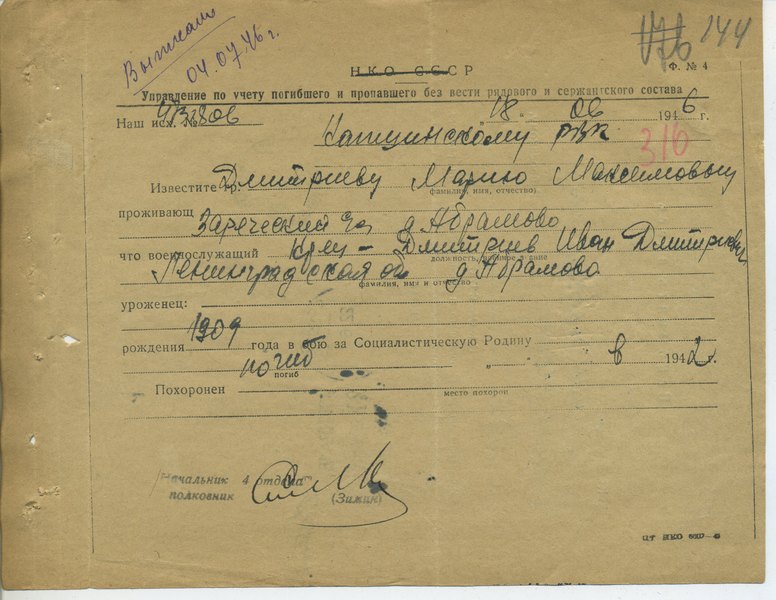 Выписал
04.07.46 г.
176 144
НКО СССР
Ф. № 4
Управление по учету погибшего и пропавшего без вести рядового и сержантского состава
Наш исх. № 18. 06 1946 г.
РВК
316
Известите гр. Дмитриеву Марию Максимовну
(фамилия, имя, отчество)
проживающ Зареческий д Абрамово
что военнослужащий Кр-ец - Дмитриев Иван Дмитриевич
должность, военное звание
Ленинградская об д Абрамово
фамилия, имя и отчество
уроженец:
рождения 1909 года в бою за Социалистическую Родину
погиб в 1942 г.
погиб
Похоронен
место похорон
Начальник 4 отдела
полковник (Зимин)
ЦТ НКО